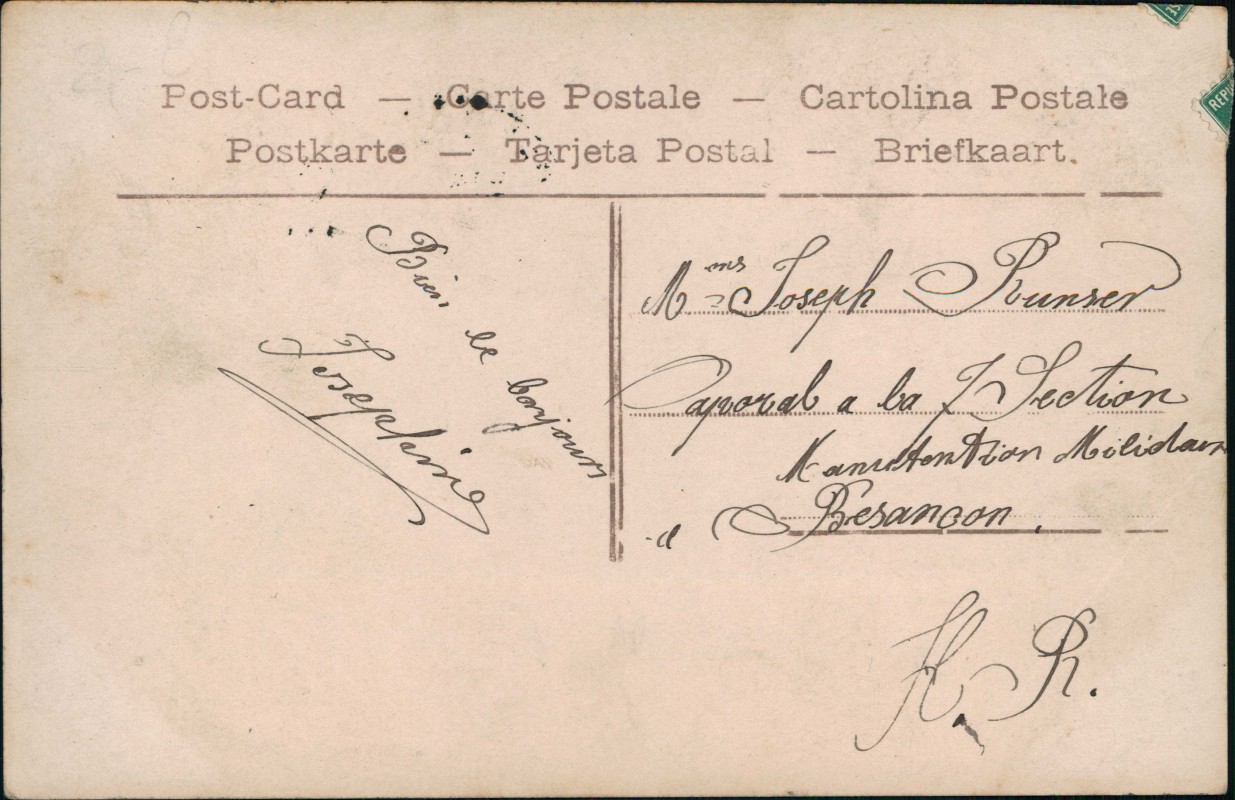 Post-Card — Carte Postale — Cartolina Postale
Postkarte — Tarjeta Postal — Briefkaart.
REPU
Bien le bonjour
Josephine
Mms Joseph Runser
Caporal a la 7 Section
Manutention Militair
a Besançon.
H. R.